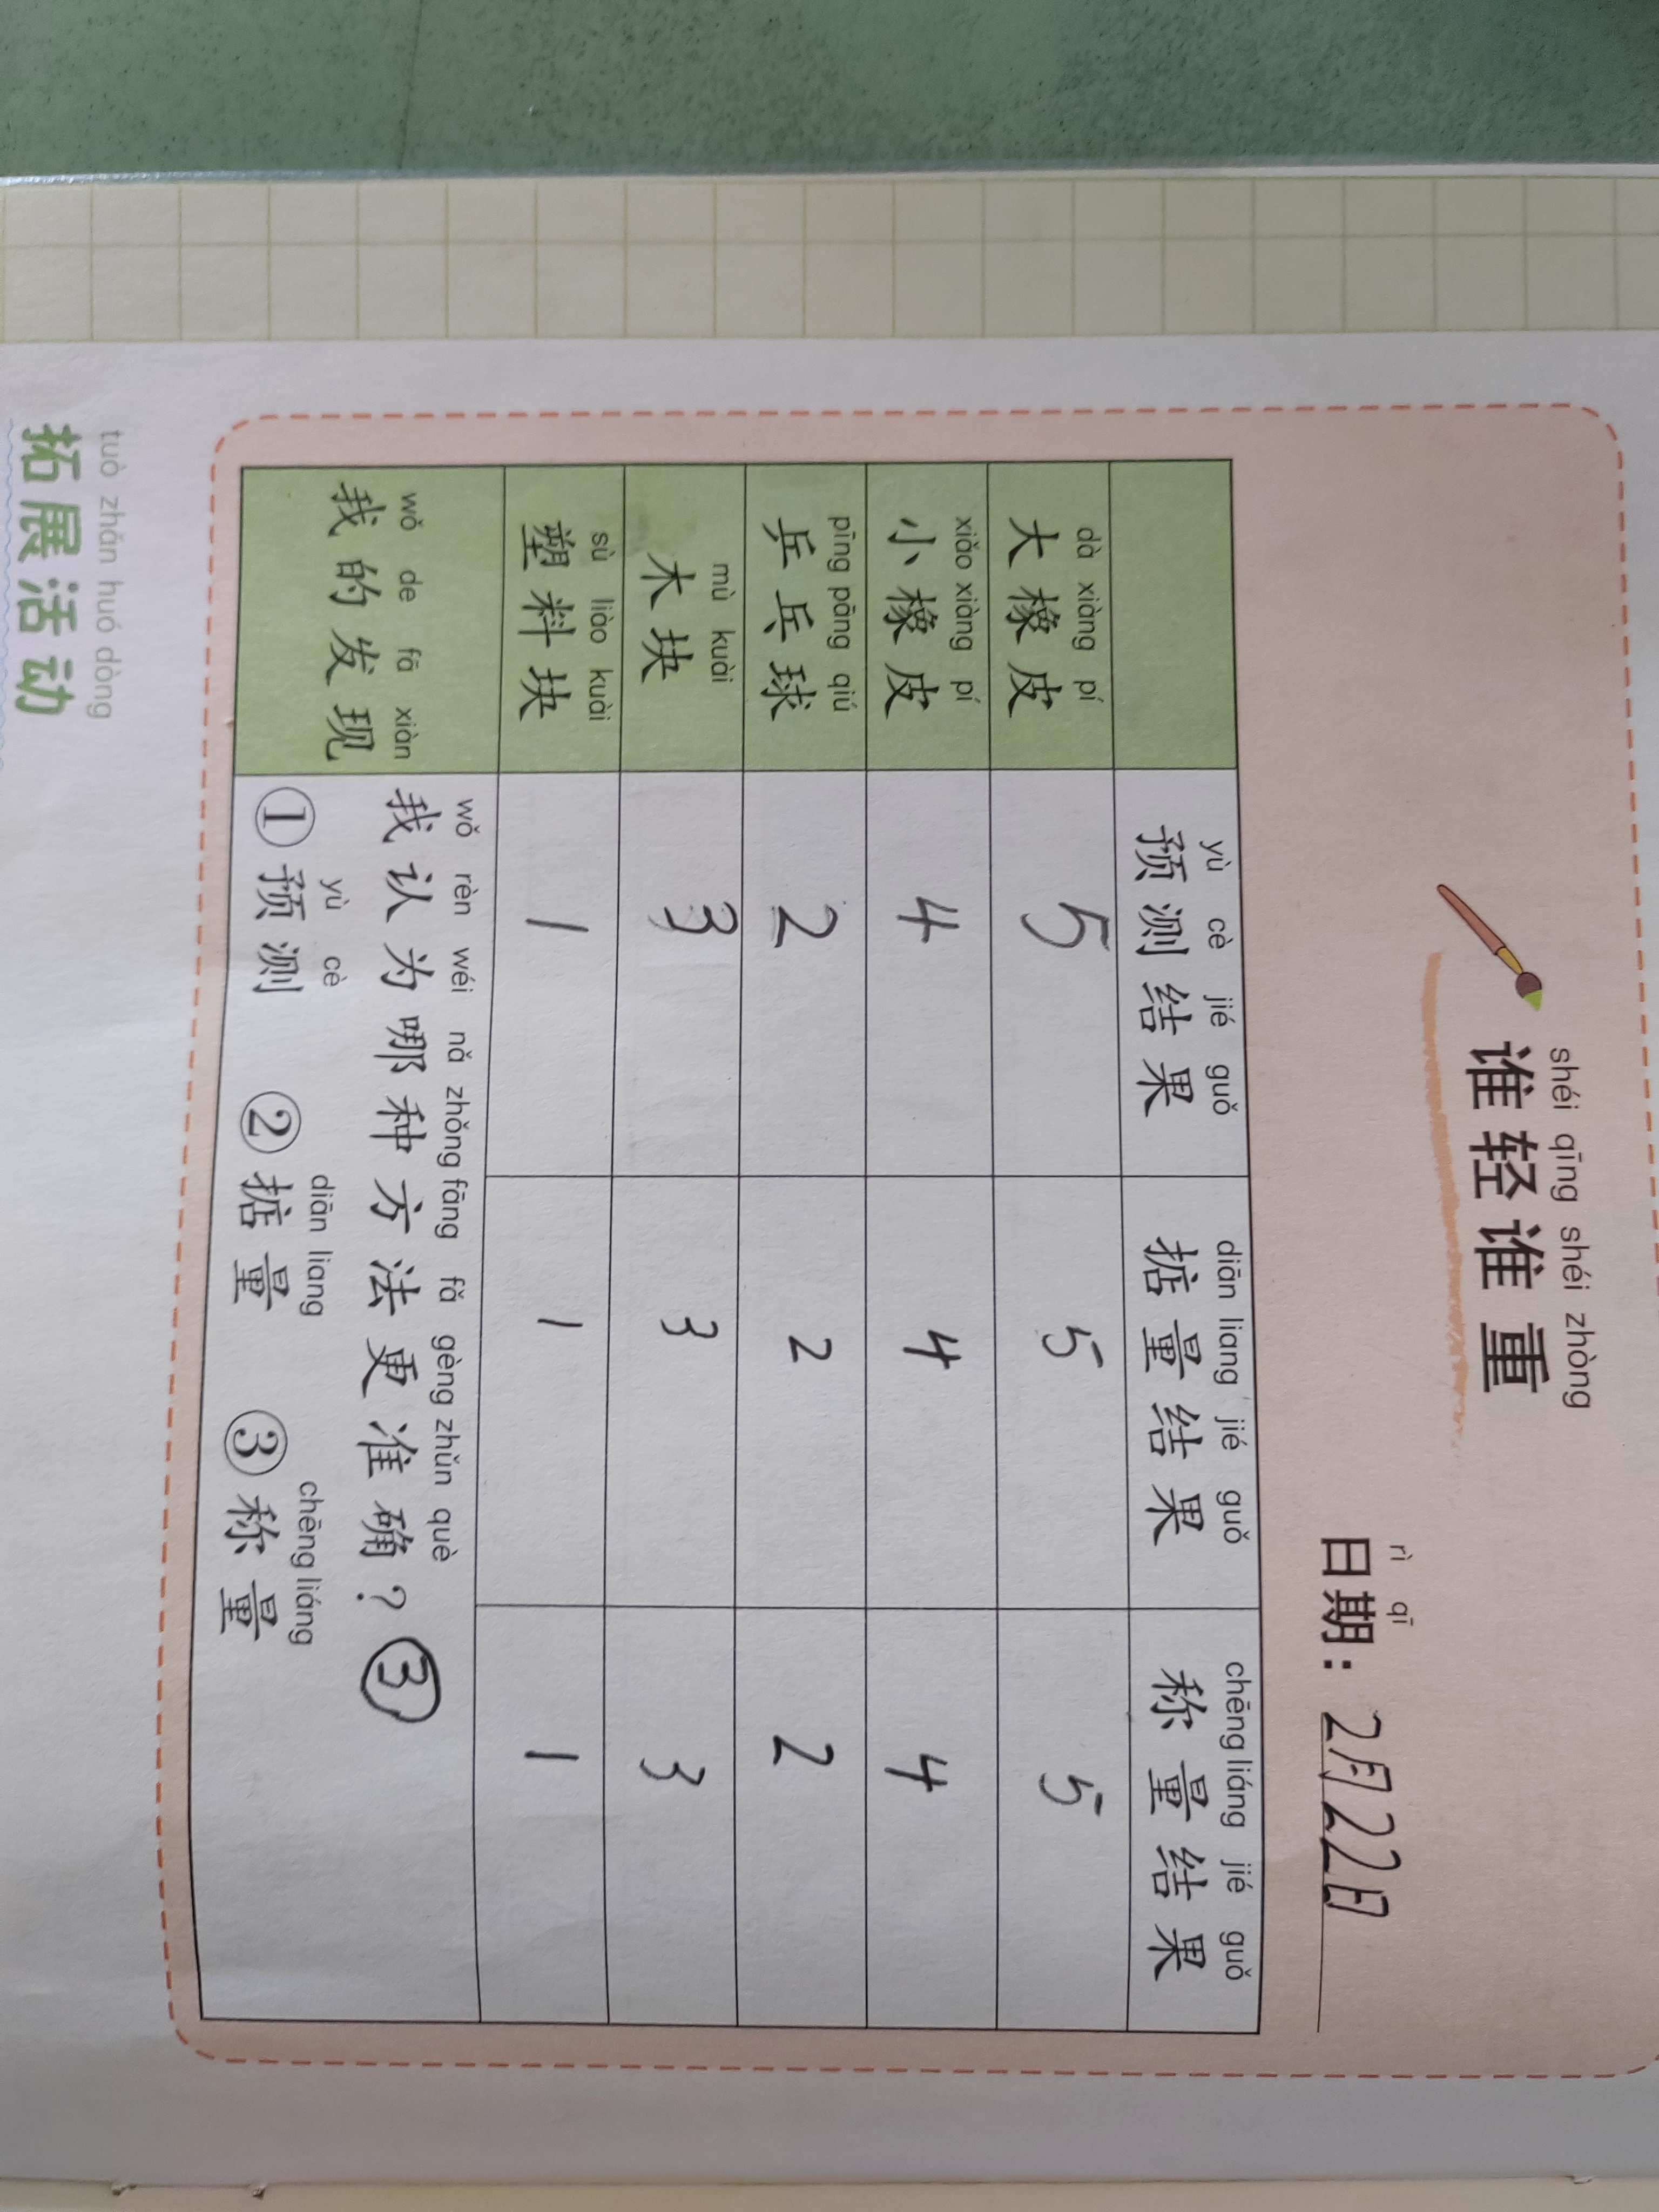 shéi qīng shéi zhòng
谁轻谁重
rì qī
日期：2月22日
yù cè jié guǒ diān liang jié guǒ chēng liáng jié guǒ
预测结果 掂量结果 称量结果
dà xiàng pí
大橡皮 5 5 5
xiǎo xiàng pí
小橡皮 4 4 4
pīng pāng qiú
乒乓球 2 2 2
mù kuài
木块 3 3 3
sù liào kuài
塑料块 1 1 1
wǒ de fā xiàn
我的发现
wǒ rèn wéi nǎ zhǒng fāng fǎ gèng zhǔn què
我认为哪种方法更准确？③
yù cè diān liang chēng liáng
①预测 ②掂量 ③称量
tuò zhǎn huó dòng
拓展活动